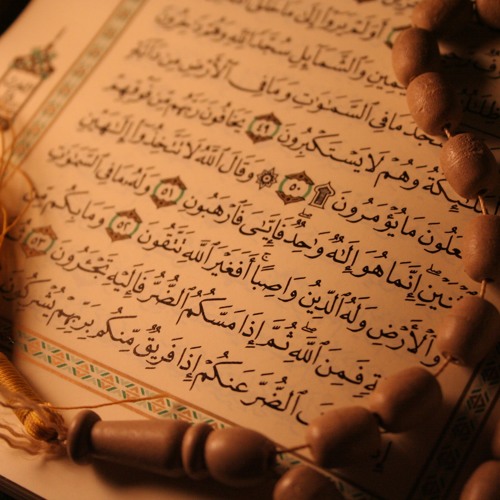 أَوَلَمْ يَرَوْا۟ إِلَىٰ مَا خَلَقَ
ٱلْيَمِينِ وَٱلشَّمَآئِلِ سُجَّدًا لِّلَّهِ وَهُمْ دَٰخِرُونَ
يَسْجُدُ مَا فِى ٱلسَّمَٰوَٰتِ وَمَا فِى ٱلْأَرْضِ مِن دَآبَّةٍ
وَٱلْمَلَٰٓئِكَةُ وَهُمْ لَا يَسْتَكْبِرُونَ ٤٩ يَخَافُونَ رَبَّهُم مِّن فَوْقِهِمْ
وَيَفْعَلُونَ مَا يُؤْمَرُونَ ۩ ٥٠ ۞ وَقَالَ ٱللَّهُ لَا تَتَّخِذُوٓا۟ إِلَٰهَيْنِ
ٱثْنَيْنِ ۖ إِنَّمَا هُوَ إِلَٰهٌ وَٰحِدٌ ۖ فَإِيَّٰىَ فَٱرْهَبُونِ ٥١ وَلَهُۥ مَا فِى ٱلسَّمَٰوَٰتِ
وَٱلْأَرْضِ وَلَهُ ٱلدِّينُ وَاصِبًا ۚ أَفَغَيْرَ ٱللَّهِ تَتَّقُونَ ٥٢ وَمَا بِكُم مِّن
نِّعْمَةٍ فَمِنَ ٱللَّهِ ۖ ثُمَّ إِذَا مَسَّكُمُ ٱلضُّرُّ فَإِلَيْهِ تَجْـَٔرُونَ ٥٣
كَشَفَ ٱلضُّرَّ عَنكُمْ إِذَا فَرِيقٌ مِّنكُم بِرَبِّهِمْ يُشْرِكُونَ